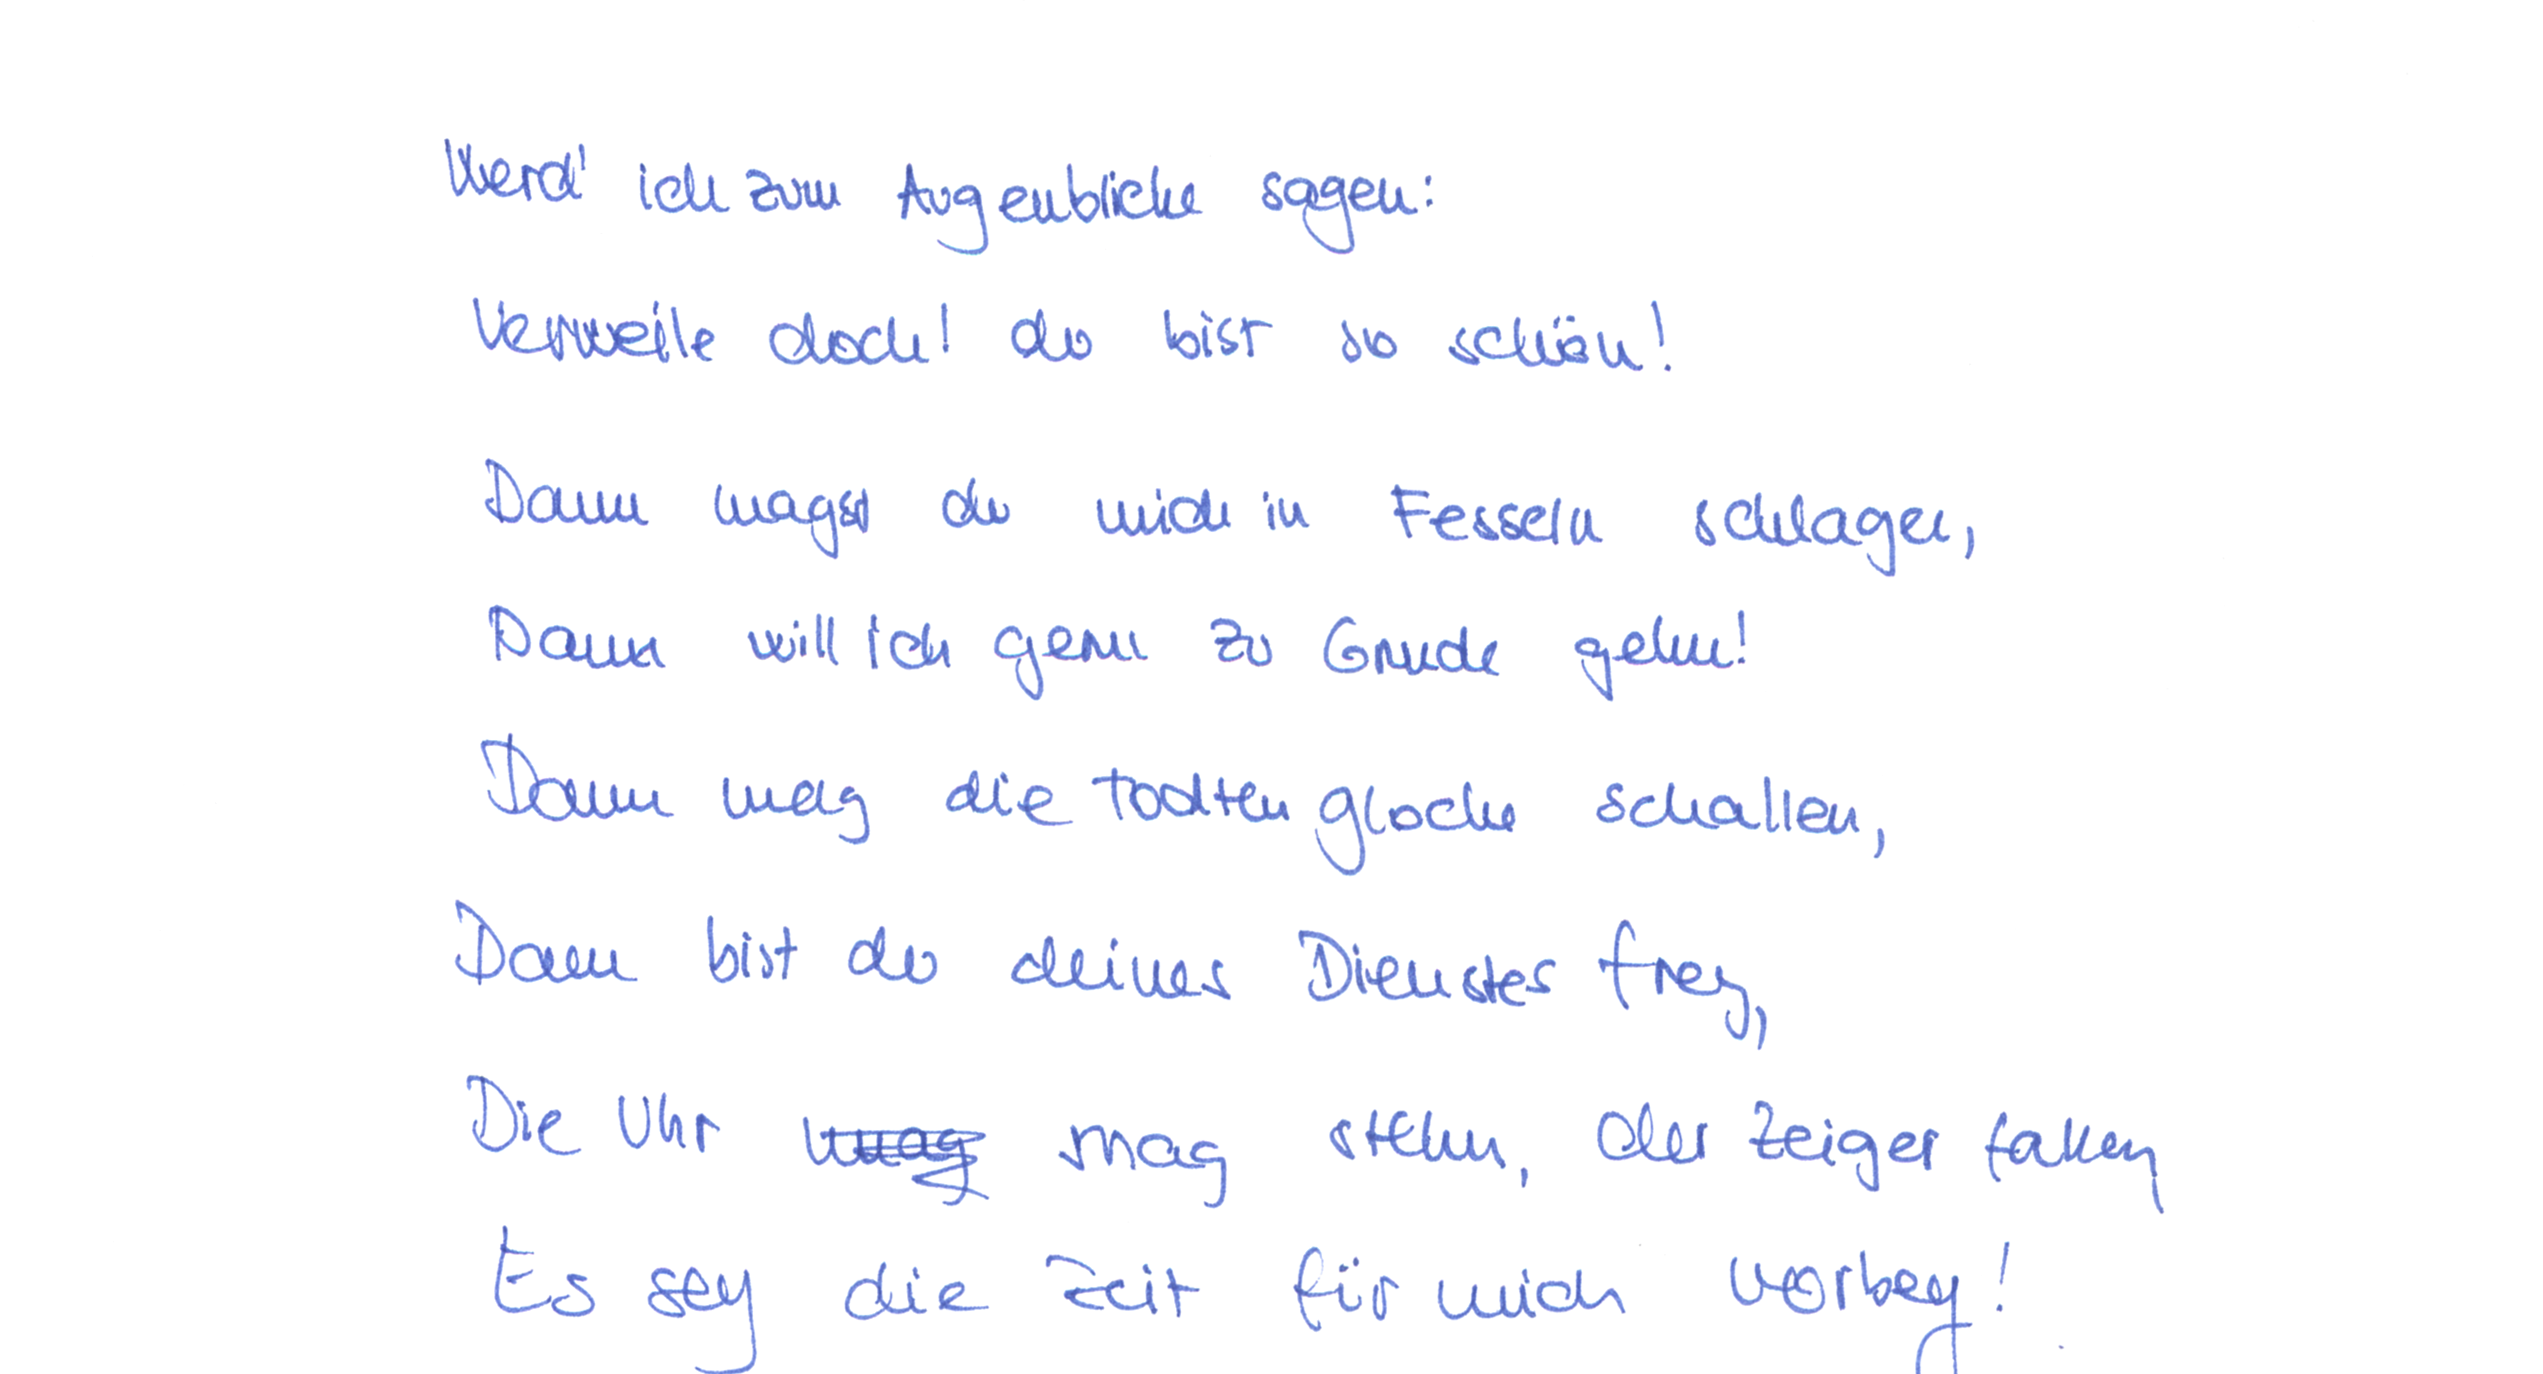 Werd' ich zum Augenblicke sagen:
Verweile doch! du bist so schön!
Dann magst du mich in Fesseln schlagen,
Dann will ich gern zu Grude gehn!
Dann mag die Todtenglocke schallen,
Dann bist du deines Dienstes frey,
Die Uhr mag mag stehn, der Zeiger fallen,
Es sey die Zeit für mich vorbey!